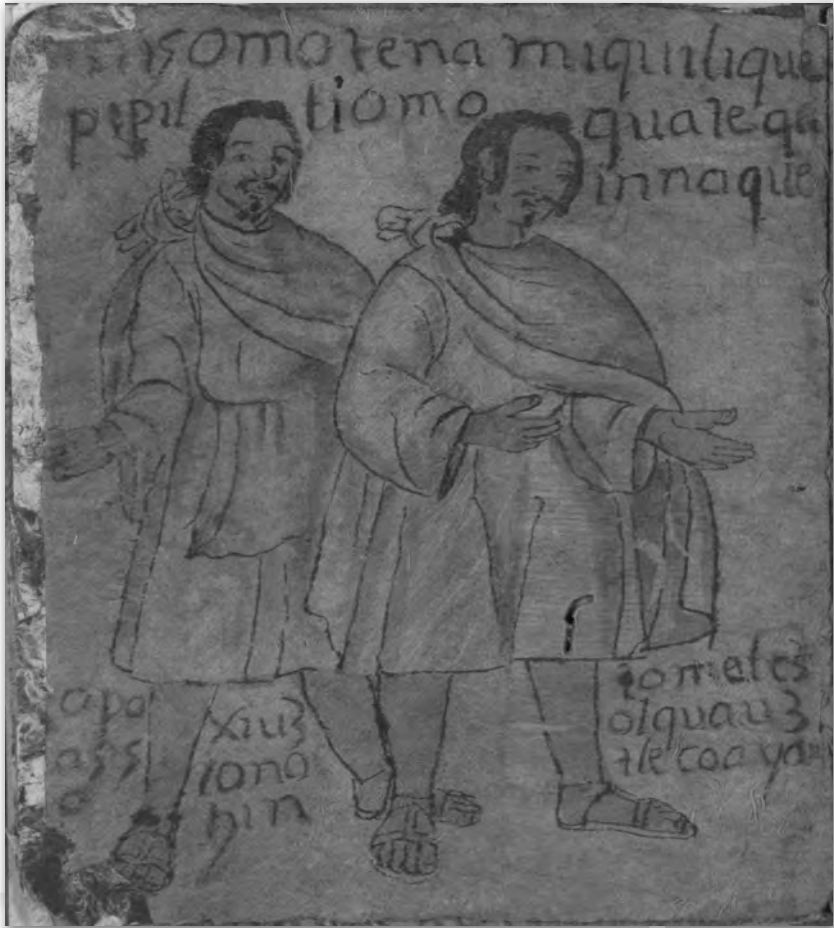 somotena miquilique
pipil tiomo quatequi
innaque
apo
xiuz
iono
hin
iometes
olquauz
tlecoaya